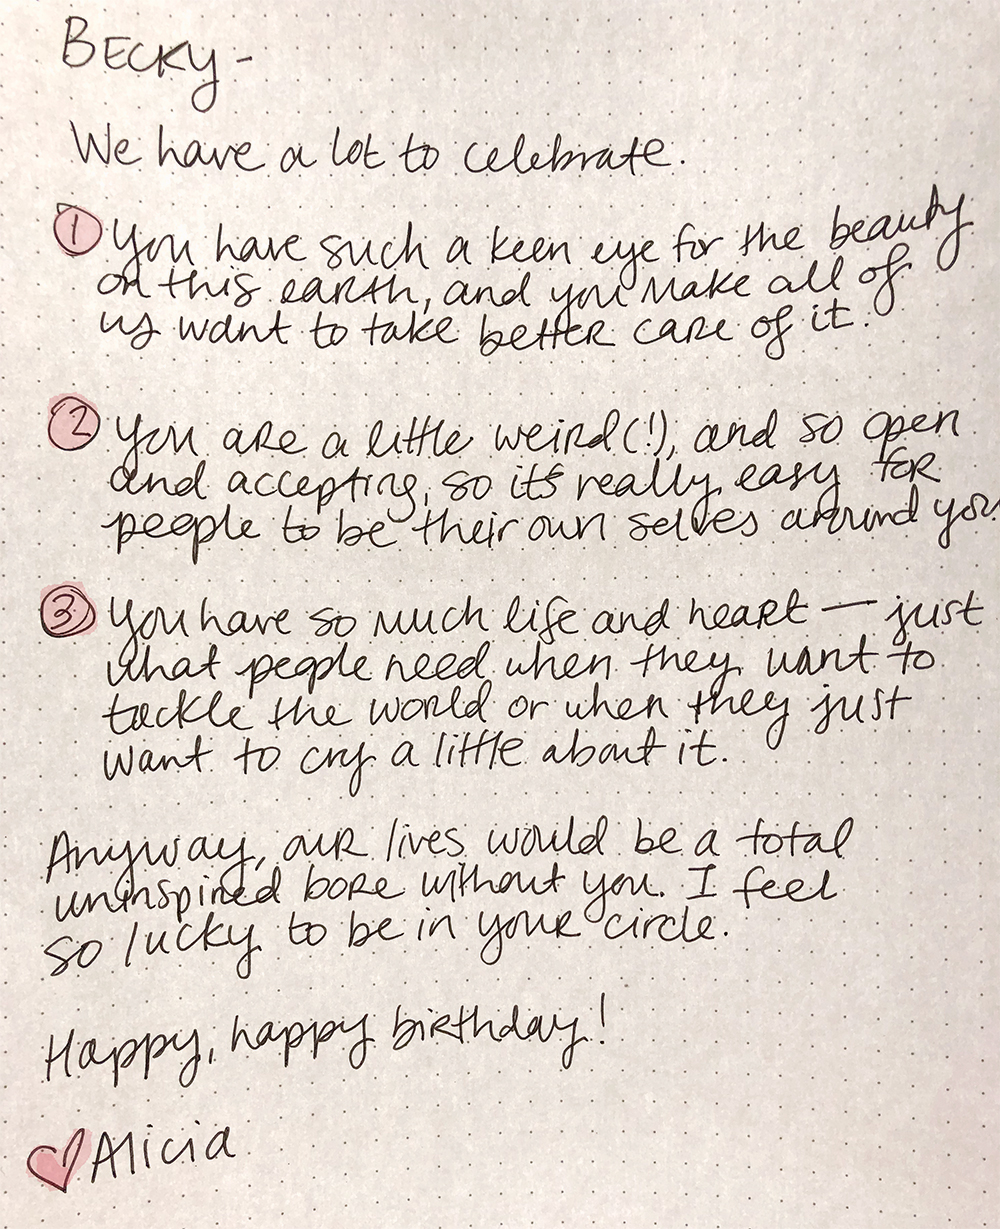 BECKY -
We have a lot to celebrate.
1 You have such a keen eye for the beauty
on this earth, and you make all of
us want to take better care of it.
2 You are a little weird(!), and so open
and accepting, so it's really easy for
people to be their own selves around you.
3 You have so much life and heart — just
what people need when they want to
tackle the world or when they just
want to cry a little about it.
Anyway, our lives would be a total
uninspired bore without you. I feel
so lucky to be in your circle.
Happy, happy birthday!
♡ Alicia